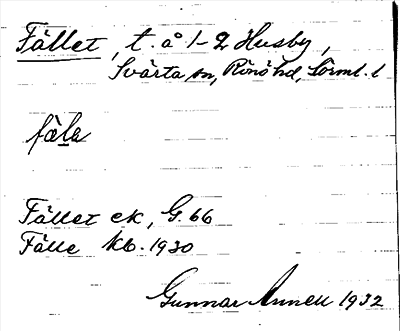 Fället, t. å 1-2 Husby,
Svärta sn, Rönö hd, Sörml. l
fäla
Fället ek, G. 66
Fälle kb. 1930
Gunnar Annell 1932